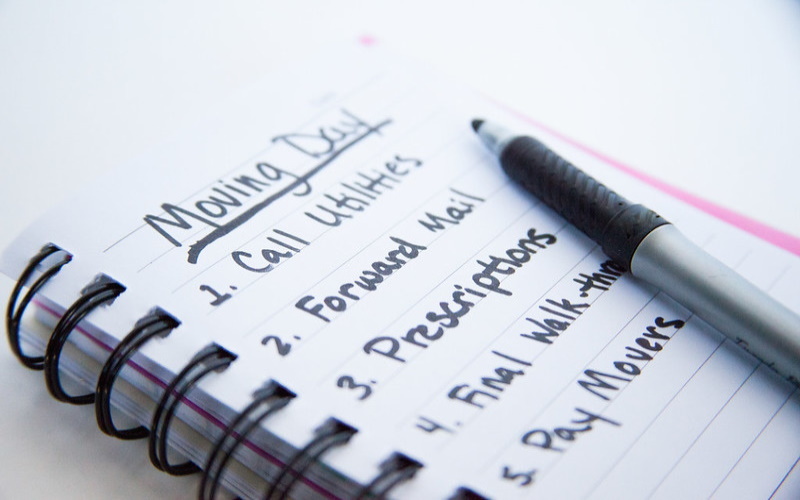 Moving Day
1. Call Utilities
2. Forward Mail
3. Prescriptions
4. Final Walk-thro
5. Pay Movers